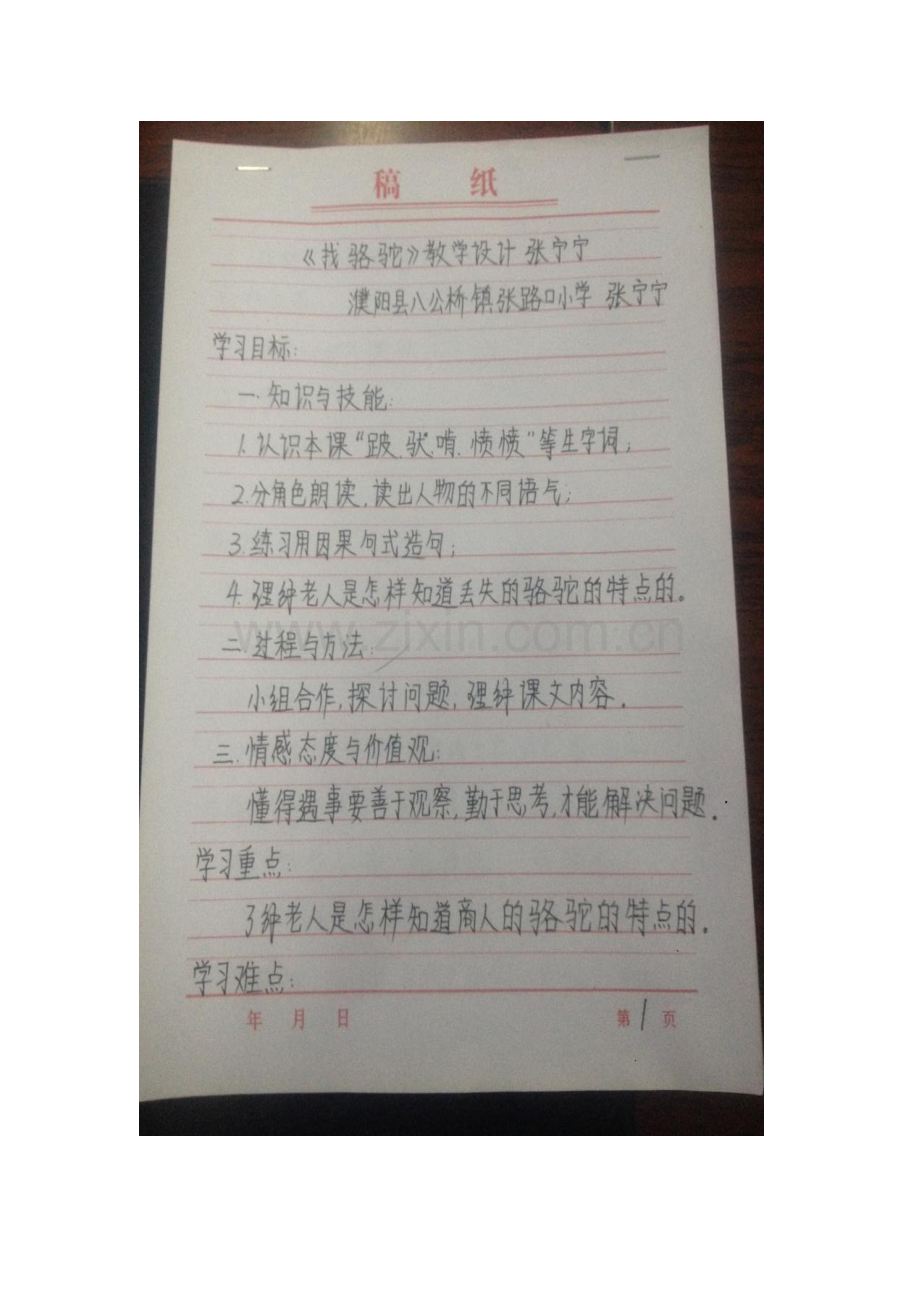 稿 纸
《找骆驼》教学设计 张宁宁
濮阳县八公桥镇张路口小学 张宁宁
学习目标:
一.知识与技能:
1.认识本课“跛、驮、啃、愤愤”等生字词;
2.分角色朗读,读出人物的不同语气;
3.练习用因果句式造句;
4.理解老人是怎样知道丢失的骆驼的特点的。
二.过程与方法:
小组合作,探讨问题,理解课文内容.
三.情感态度与价值观:
懂得遇事要善于观察,勤于思考,才能解决问题.
学习重点:
了解老人是怎样知道商人的骆驼的特点的.
学习难点:
年 月 日 第1页
www.zixin.com.cn